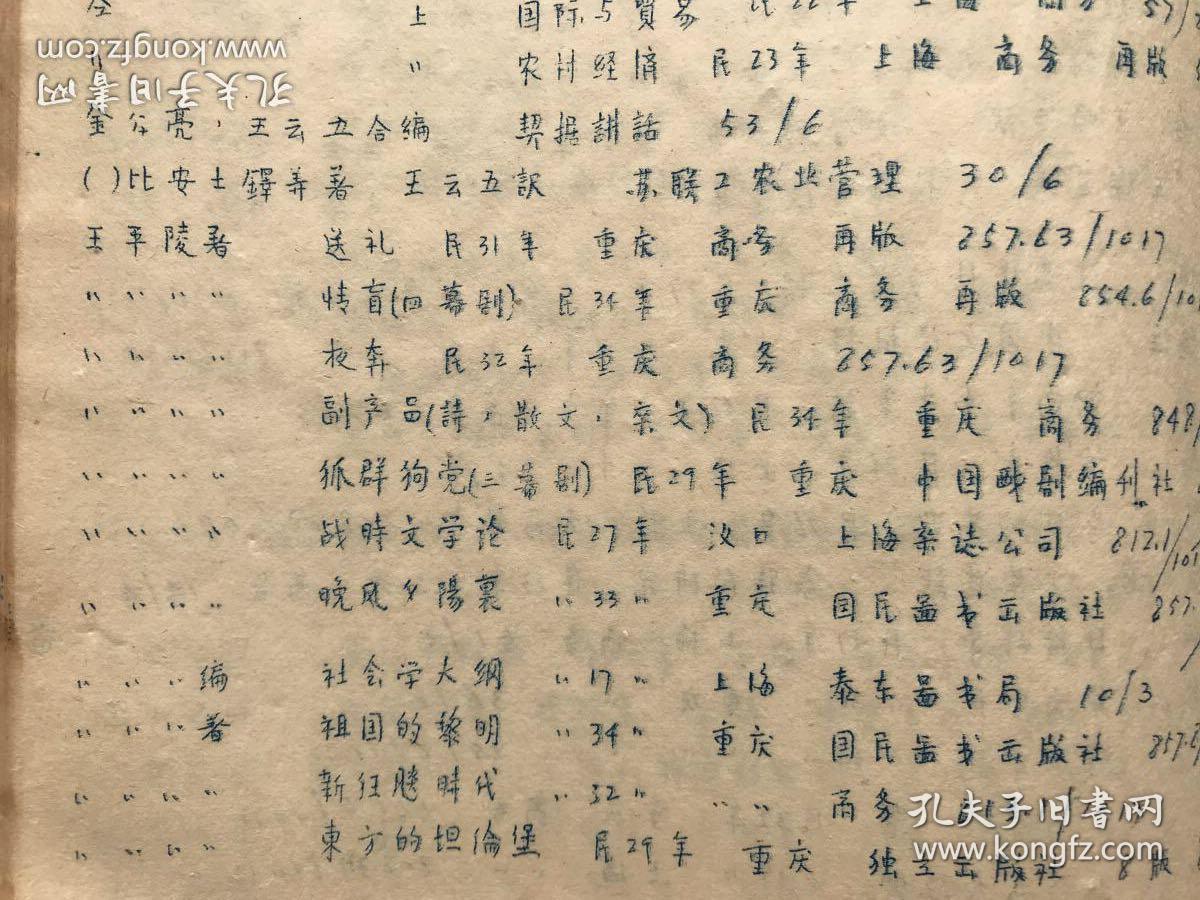 仝 上 国际与貿易 民22年 上海 商务 57/
〃 〃 农村経済 民23年 上海 商务 再版
www.kongfz.com
孔夫子旧書网
金公亮，王云五合编 契据講話 53/6
( )比安士鐸弄著 王云五訳 苏联工农业营理 30/6
王平陵著 送礼 民31年 重庆 商务 再版 857.63/1017
〃〃〃〃 情盲(四幕剧) 民34年 重庆 商务 再版 854.6/10
〃〃〃〃 夜奔 民32年 重庆 商务 857.63/1017
〃〃〃〃 副产品(詩，散文，杂文) 民34年 重庆 商务 848/
〃〃〃〃 狐群狗党(三幕剧) 民29年 重庆 中国戏剧编刊社
〃〃〃〃 战時文学论 民27年 汉口 上海杂誌公司 812.1/101
〃〃〃〃 晚风夕陽裏 〃33〃 重庆 国民圖书出版社 857.
〃〃〃编 社会学大纲 〃17〃 上海 泰东圖书局 10/3
〃〃〃著 祖国的黎明 〃34〃 重庆 国民圖书出版社 857.6
〃〃〃〃 新狂飚時代 〃32〃 〃〃 商务
〃〃〃〃 東方的坦倫堡 民29年 重庆 独立出版社 8版
孔夫子旧書网
www.kongfz.com